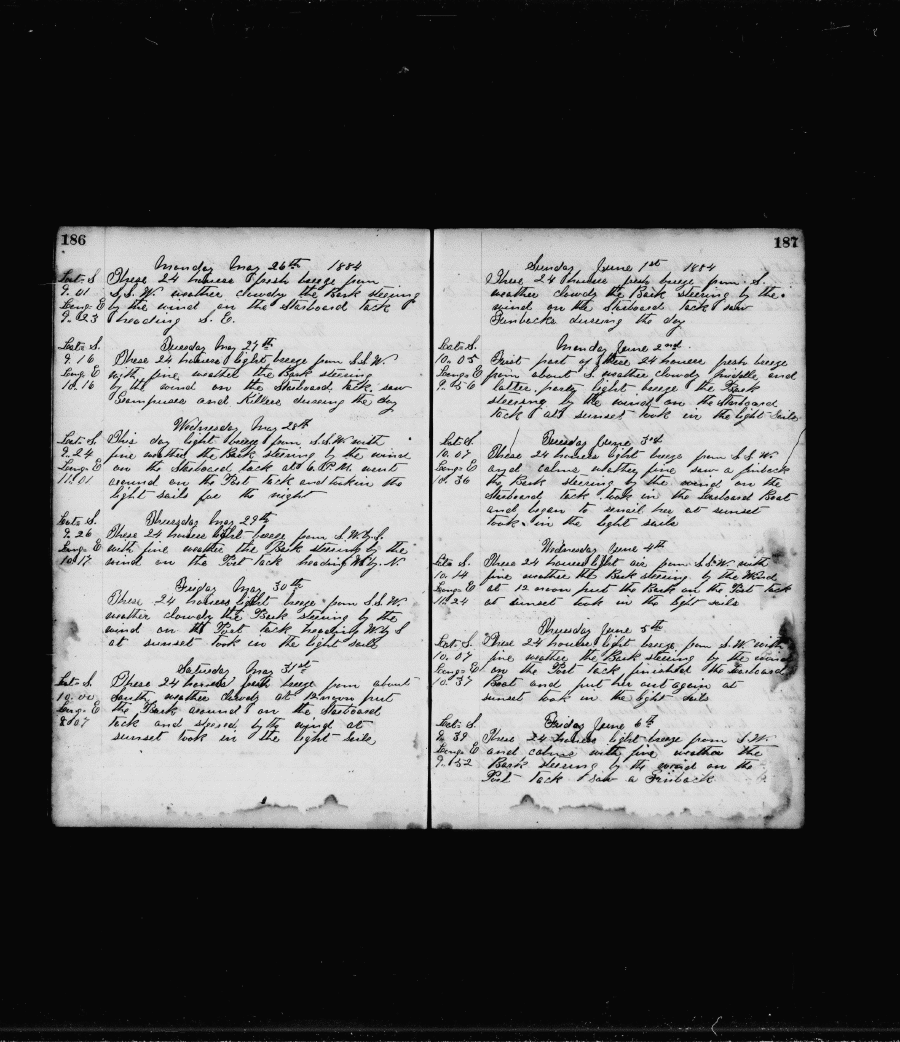 186
Monday May 26th 1884
Lat. S These 24 houres fresh breeze from
9.01 S.S.W. weather clowdy the Bark steering
Long. E by the wind on the Starboard tack
9.23 heading S.E.
Lat. S Tuesday May 27th
9.16 These 24 houres light breeze from S.S.W.
Long. E with fine weather the Bark steering
10.16 by the wind on the Starboard tack saw
Grampuses and Killers dureing the day
Wednesday May 28th
Lat. S This day light breeze from S.S.W. with
9.24 fine weather the Bark steering by the wind
Long. E on the Starboard tack at 6 P.M. went
11.01 around on the Port tack and tookin the
light sails for the night
Lat. S. Thursday May 29th
9.26 These 24 houres light breeze from S.W.by.S.
Long. E with fine weather the Bark steering by the
10.17 wind on the Port tack heading W.by.N.
Friday May 30th
These 24 houres light breeze from S.S.W.
weather clowdy the Bark steering by the
wind on the Port tack heading W.by S
at sunset took in the light sails
Saturday May 31st
Lat. S These 24 houres fresh breeze from about
10.00 South weather clowdy at 12 noon put
Long. E the Bark around on the Starboard
8.07 tack and steered by the wind at
sunset took in the light Sails
187
Sunday June 1st 1884
These 24 houres fresh breeze from S.
weather clowdy the Bark steering by the
wind on the Starboard tack saw
Finbacks dureing the day
Lat. S. Monday June 2nd
10.05 First part of these 24 houres fresh breeze
Long. E from about S weather clowdy middle and
9.56 latter parts light breeze the Bark
steering by the wind on the Starboard
tack at sunset took in the light Sails
Lat. S Tuesday June 3rd
10.07 These 24 houres light breeze from S.S.W.
Long. E and calms weather fine saw a finback
10.36 the Bark steering by the wind on the
Starboard tack took in the Starboard Boat
and began to her at sunset
took in the light sails
Wednesday June 4th
Lat. S. These 24 houres light air from S.S.W. with
10.14 fine weather the Bark steering by the Wind
Long. E at 12 noon put the Bark on the Port tack
11.24 at sunset took in the light sails
Thursday June 5th
Lat. S. These 24 houres light breeze from S.W. with
10.07 fine weather the Bark steering by the wind
Long. E on the Port tack finished the Starboard
10.37 Boat and put her out again at
sunset took in the light sails
Lat. S. Friday June 6th
9.39 These 24 houres light breeze from S.W.
Long. E and calms with fine weather the
9.52 Bark steering by the wind on the
Port tack saw a Finback